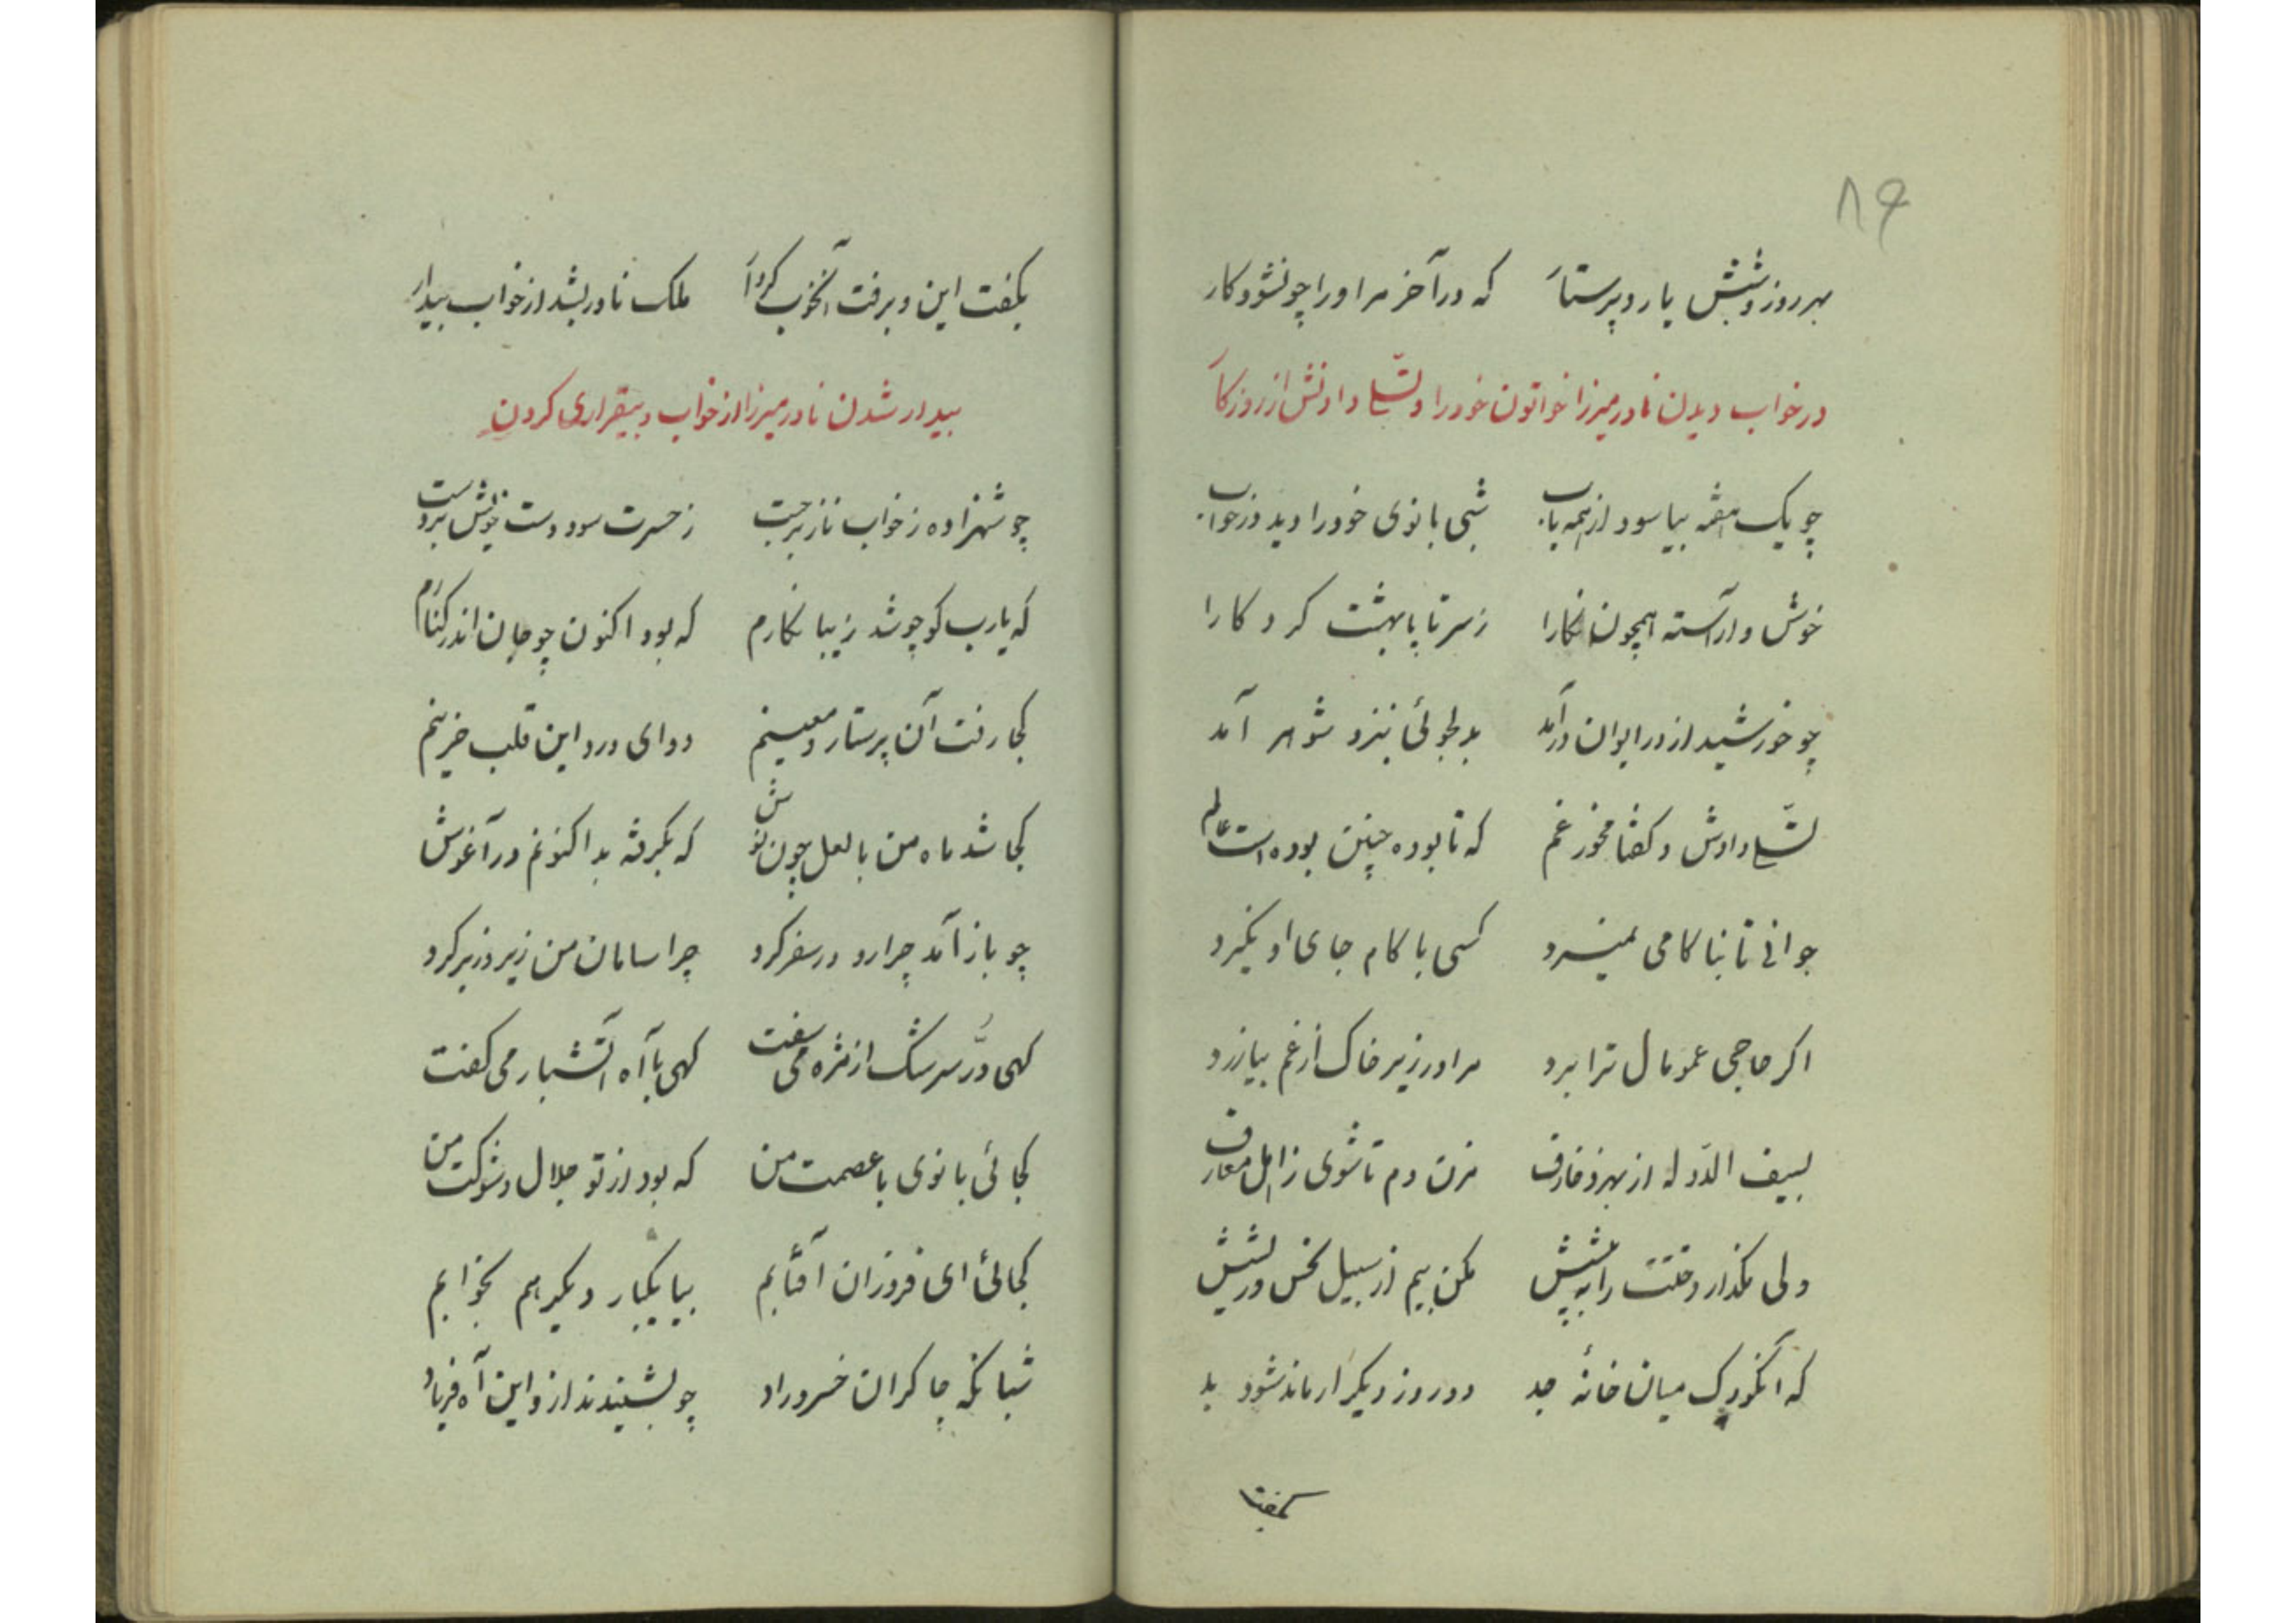 ۸۶
بهر روز و شبش یار و پرستار که در آخر مر او را چونشود کار
در خواب دیدن نادر میرزا خواتون خود را و تسلّی دادنش از روزگار
چو یک هفته بیاسود از همه باب شبی بانوی خود را دید در خواب
خوش و آراسته همچون نگارا ز سر تا پا بهشت کردکارا
چو خورشید از در ایوان درآمد بدلجوئی بنزد شوهر آمد
تسلّی دادش و کفتا مخور غم که تا بوده چنین بوده است عالم
جوانی تا بناکامی نمیرد کسی با کام جای او نکیرد
اکر حاجی عمو مال ترا برد مرا در زیر خاک از غم بیازرد
بسیف الدّوله از بهر زخارف مزن دم تا شوی ز اهل معارف
ولی مکذار دختت را به پیشش مکن بیم از سبیل نحس و ریشش
که آنکودک میان خانهٔ جد دو روز دیکر ار ماند شود بد
بکفت
بکفت این و برفت آنخوب کردار ملک نادر بشد از خواب بیدار
بیدار شدن نادر میرزا از خواب و بیقراری کردن
چو شهزاده ز خواب ناز برجست ز حسرت سود دست خویش بر دست
که یارب کو چو شد زیبا نکارم که بود اکنون چو جان اندر کنارم
کجا رفت آن پرستار و معینم دوای درد این قلب حزینم
کجا شد ماه من با لعل چون نوش که بکرفته بد اکنونم در آغوش
چو باز آمد چرا رو در سفر کرد چرا سامان من زیر و زبر کرد
کهی درّ سرشک از مژه می سفت کهی با آه آتشبار می کفت
کجائی بانوی با عصمت من که بود از تو جلال و شوکت من
کجائی ای فروزان آفتابم بیا یکبار دیکر هم بخوابم
شبانکه چاکران خسرو راد چو بشنیدند از و این آه و فریاد